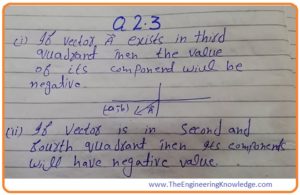 Q 2.3
(i) If vector A exists in third
quadrant then the value
of its component will be
negative.
(-a,-b)
A
(ii) If vector is in second and
fourth quadrant then its components
will have negative value.
www.TheEngineeringKnowledge.com